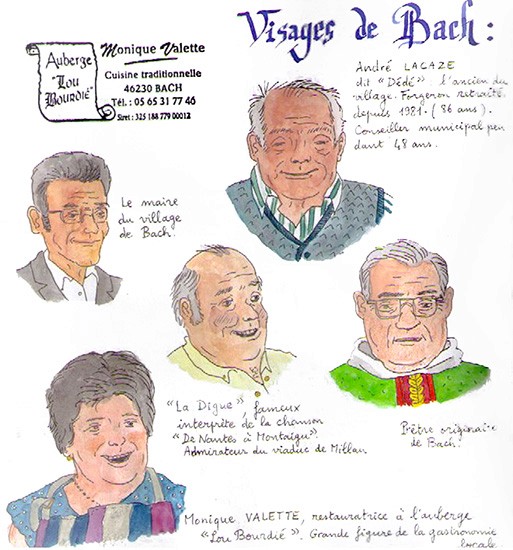 Visages de Bach :
Auberge
"Lou
Bourdié"
Monique Valette
Cuisine traditionnelle
46230 BACH
Tél. : 05 65 31 77 46
Siret : 325 188 779 00012
André LAGAZE
dit "Dédé" l'ancien du
village. Forgeron retraité
depuis 1981. (86 ans).
Conseiller municipal pen
dant 48 ans.
Le maire
du village
de Bach.
"La Digue", fameux
interprète de la chanson
"De Nantes à Montaigu".
Admirateur du viaduc de Millau
Prêtre originaire
de Bach.
Monique VALETTE, restauratrice à l'auberge
"Lou Bourdié". Grande figure de la gastronomie
locale.